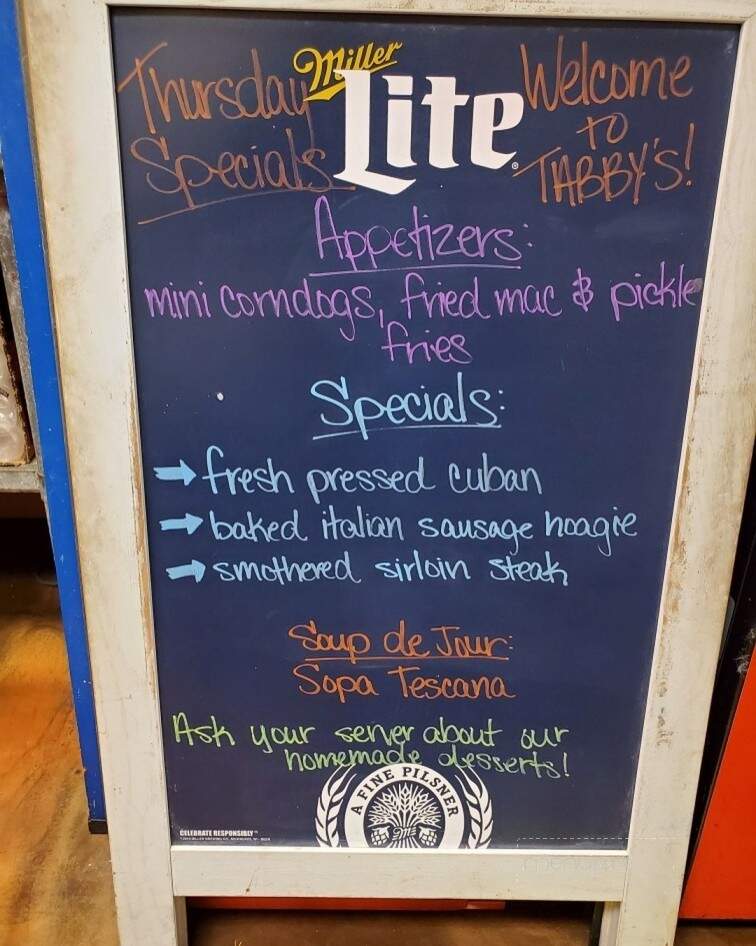 Thursday
Specials
Miller
Lite
Welcome
to
TABBY'S!
Appetizers:
mini corndogs, fried mac & pickle
fries
Specials:
→ fresh pressed cuban
→ baked italian sausage hoagie
→ smothered sirloin steak
Soup de Jour:
Sopa Tescana
Ask your server about our
homemade desserts!
A FINE PILSNER
CELEBRATE RESPONSIBLY™